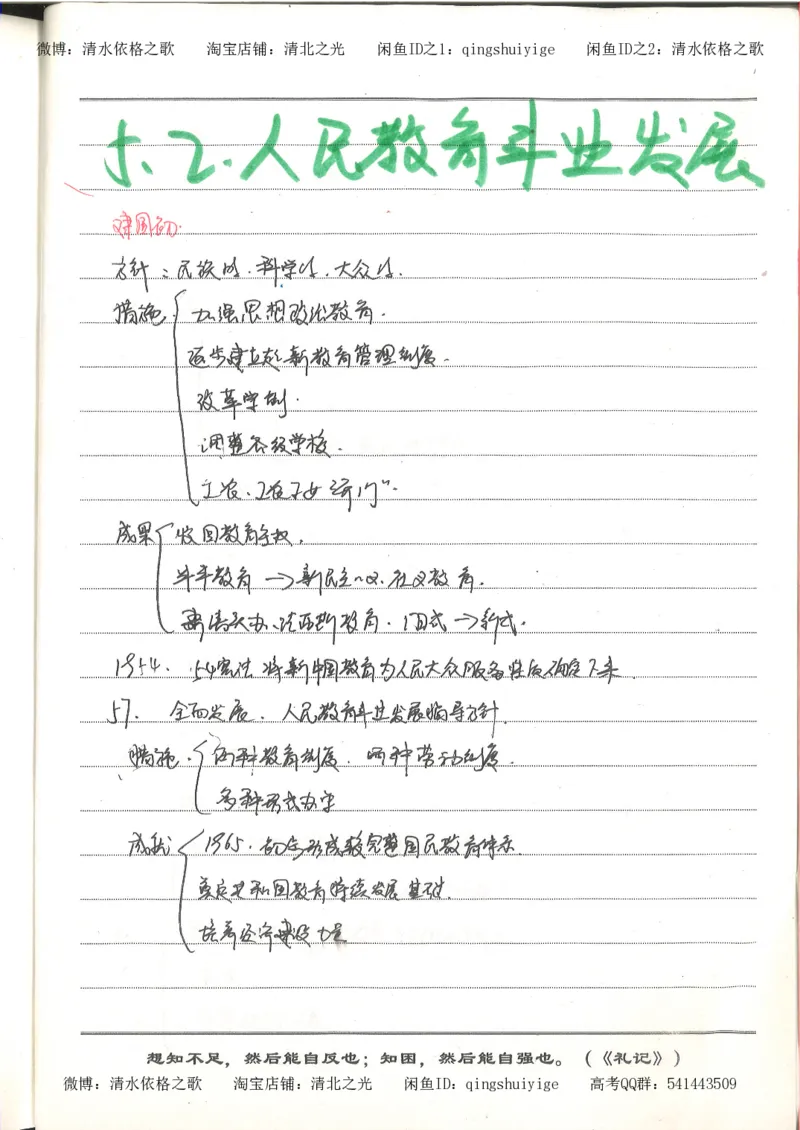 微博：清水依格之歌 淘宝店铺：清北之光 闲鱼ID之1：qingshuiyige 闲鱼ID之2：清水依格之歌
5.2.人民教育事业发展
建国初.
方针：民族的.科学的.大众的.
措施 加强思想政治教育.
逐步建立起新教育管理制度.
改革学制.
调整各级学校.
工农、工农子女"开门".
成果 收回教育主权.
半半教育→新民主义.社义教育.
法西斯教育.旧式→新式.
1954. 54宪法将新中国教育为人民大众服务性质确定下来.
57. 全面发展.人民教育事业发展指导方针.
措施. 两种教育制度.两种劳动制度.
多种形式办学
成就 1965.初步形成较完整国民教育体系.
奠定共和国教育持续发展基础.
培养经济建设力量
想知不足，然后能自反也；知困，然后能自强也。（《礼记》）
微博：清水依格之歌 淘宝店铺：清北之光 闲鱼ID：qingshuiyige 高考QQ群：541443509